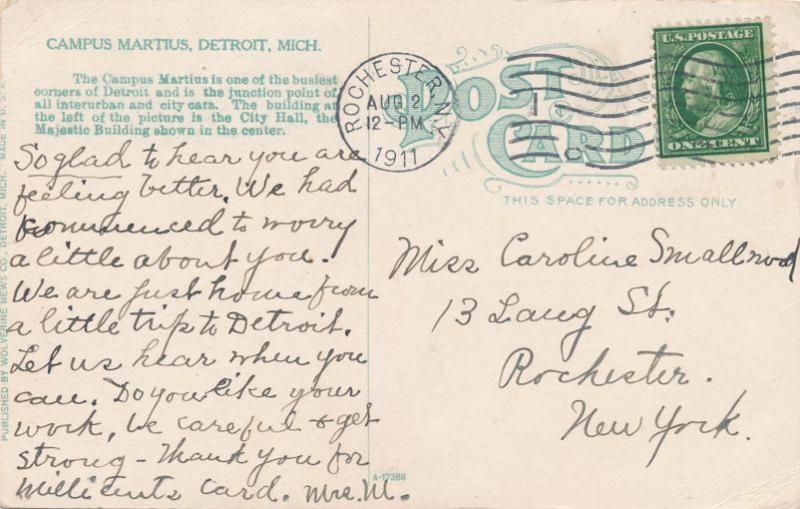 CAMPUS MARTIUS, DETROIT, MICH.
The Campus Martius is one of the busiest
corners of Detroit and is the junction point of
all interurban and city cars. The building at
the left of the picture is the City Hall, the
Majestic Building shown in the center.
So glad to hear you are
feeling better. We had
commenced to worry
a little about you.
We are just home from
a little trip to Detroit.
Let us hear when you
can. Do you like your
work, be careful & get
strong - Thank you for
Millicents card. Mrs. M.
PUBLISHED BY WOLVERINE NEWS CO., DETROIT, MICH. MADE IN U.S.A.
ROCHESTER, N.Y.
AUG 2
12-PM
1911
POST
CARD
U.S. POSTAGE
ONE CENT
THIS SPACE FOR ADDRESS ONLY.
Miss Caroline Smallwood
13 Laug St.
Rochester.
New York.
A-17388